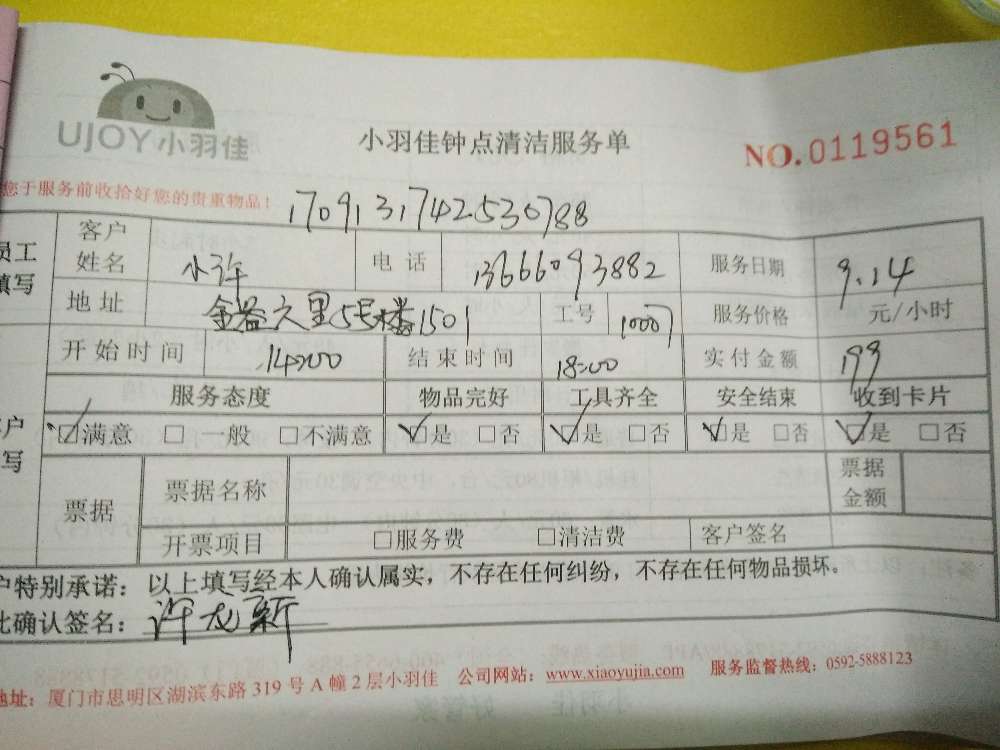 UJOY小羽佳
小羽佳钟点清洁服务单
NO.0119561
您于服务前收拾好您的贵重物品！
1709131742530788
员工填写 客户姓名 小许 电话 13666093882 服务日期 9.14
地址 金益大里5号楼1501 工号 10007 服务价格 元/小时
开始时间 14:00 结束时间 18:00 实付金额 199
服务态度 物品完好 工具齐全 安全结束 收到卡片
☑满意 □一般 □不满意 ☑是 □否 ☑是 □否 ☑是 □否 ☑是 □否
户写
票据 票据名称 票据金额
开票项目 □服务费 □清洁费 客户签名
户特别承诺：以上填写经本人确认属实，不存在任何纠纷，不存在任何物品损坏。
此确认签名：许龙新
地址：厦门市思明区湖滨东路319号A幢2层小羽佳 公司网站：www.xiaoyujia.com 服务监督热线：0592-5888123